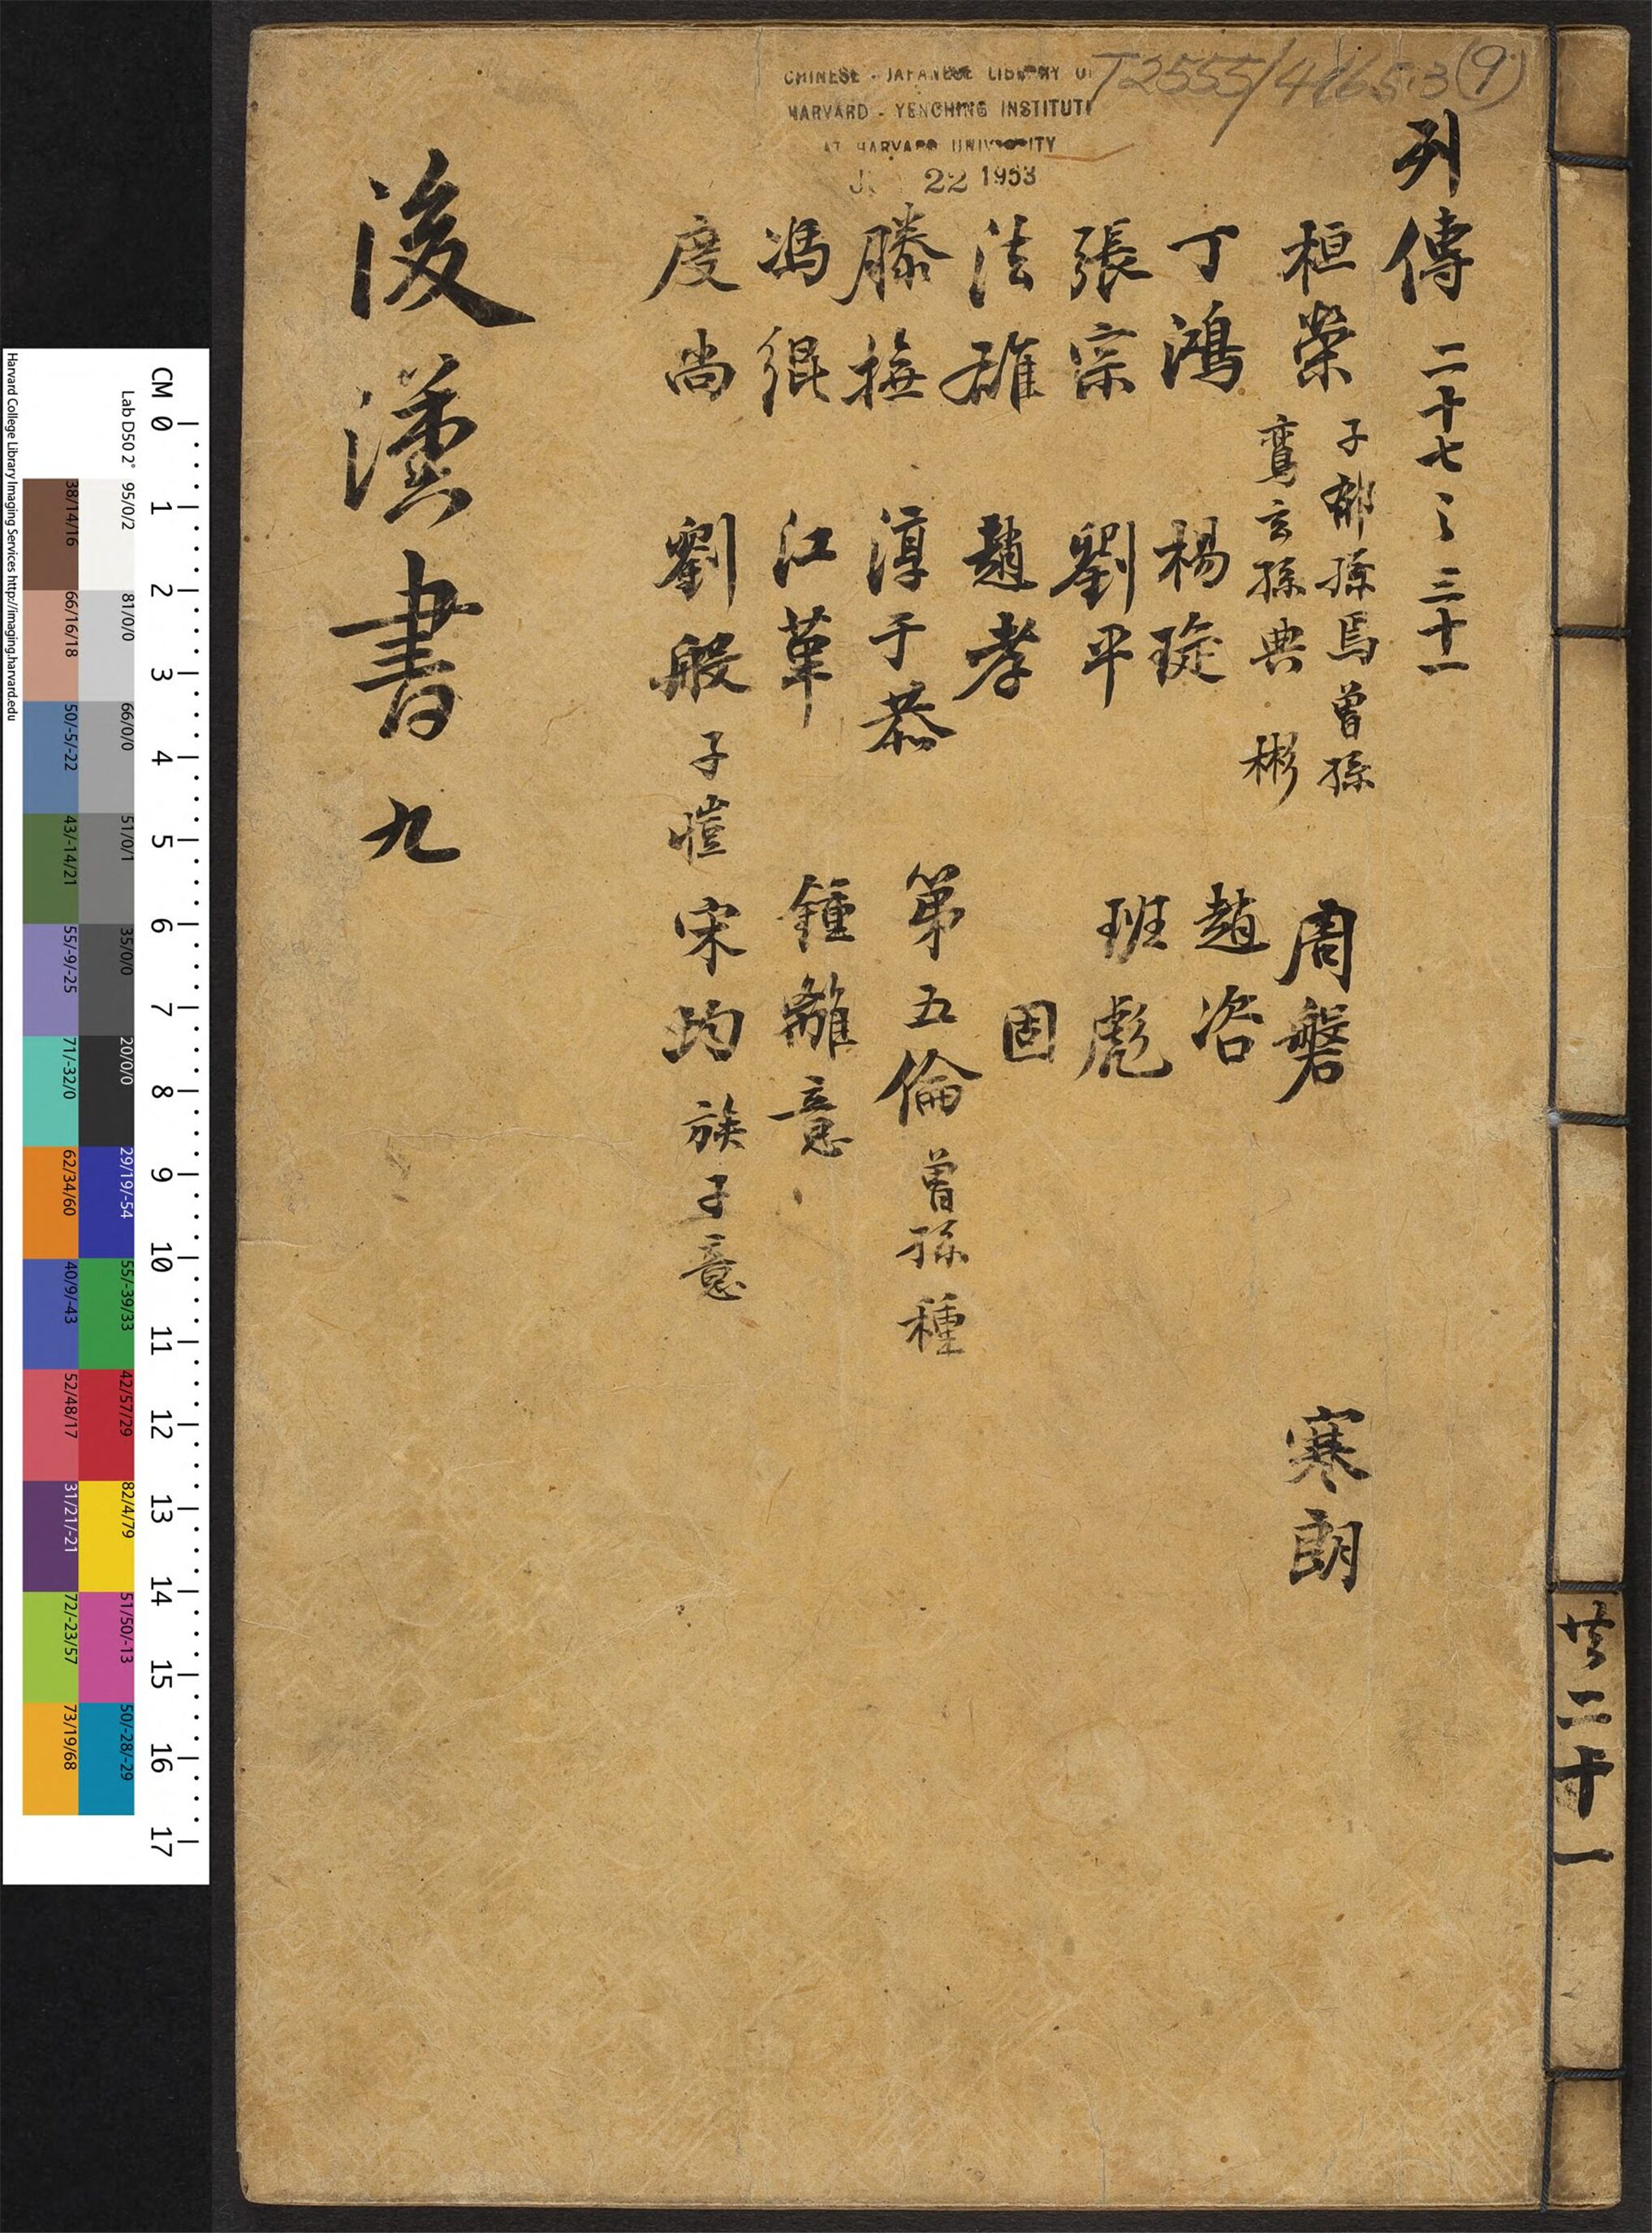 T2555/4165.3 (9)
CHINESE - JAPANESE LIBRARY OF
HARVARD - YENCHING INSTITUTE
AT HARVARD UNIVERSITY
22 1953
列傳 二十七之三十一
桓榮 子郁孫焉曾孫
鸞玄孫典 彬
丁鴻
張宗
法雄
滕撫
馮緄
度尚
楊琁
劉平
趙孝
淳于恭
江革
劉般 子愷
周磐
趙咨
班彪
固
第五倫 曾孫種
鍾離意
宋均 族子意
寒朗
後漢書 九
共三十一
CM 0 1 2 3 4 5 6 7 8 9 10 11 12 13 14 15 16 17
Lab D50 2° 95/0/2 81/0/0 66/0/0 51/0/1 35/0/0 20/0/0 29/19/-54 55/-39/33 42/57/29 82/4/79 51/50/-13 50/-28/-29
38/14/16 66/16/18 50/-5/-22 43/-14/21 55/-9/-25 71/-32/0 62/34/60 40/9/-43 52/48/17 31/21/-21 72/-23/57 73/19/68
Harvard College Library Imaging Services http://imaging.harvard.edu